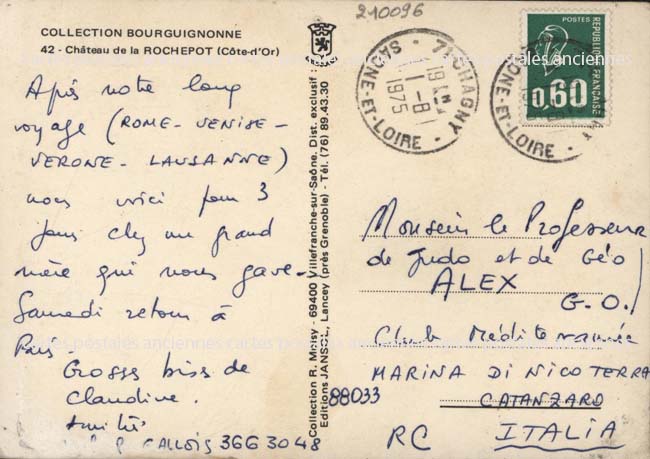 210096
COLLECTION BOURGUIGNONNE
42 - Château de la ROCHEPOT (Côte-d'Or)
Après notre long
voyage (ROME - VENISE -
VERONE - LAUSANNE)
nous voici pour 3
jours chez une grand
mère qui nous gave -
Samedi retour à
Paris -
Grosses bises de
Claudine.
Amitiés
GALLOIS 366 30 48
Collection R. Moisy - 69400 Villefranche-sur-Saône. Dist. exclusif :
Editions JANSOL, Lancey (près Grenoble) - Tél. (76) 89.43.30
71 CHAGNY
19H
1-8
1975
SAONE-ET-LOIRE
POSTES
REPUBLIQUE FRANÇAISE
0,60
SAONE-ET-LOIRE
Monsieur le Professeur
de Judo et de Géo
ALEX
G.O.
Club Méditerranée
MARINA DI NICOTERA
88033
CATANZARO
RC
ITALIA
cartes postales anciennes cartes postales anciennes